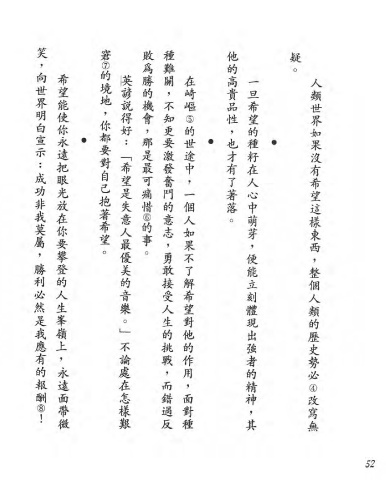 人類世界如果沒有希望這樣東西，整個人類的歷史勢必④改寫無
疑。
●
一旦希望的種籽在人心中萌芽，便能立刻體現出強者的精神，其
他的高貴品性，也才有了著落。
●
在崎嶇⑤的世途中，一個人如果不了解希望對他的作用，面對種
種難關，不知更要激發奮鬥的意志，勇敢接受人生的挑戰，而錯過反
敗爲勝的機會，那是最可痛惜⑥的事。
英諺說得好：「希望是失意人最優美的音樂。」不論處在怎樣艱
窘⑦的境地，你都要對自己抱著希望。
●
希望能使你永遠把眼光放在你要攀登的人生峯嶺上，永遠面帶微
笑，向世界明白宣示：成功非我莫屬，勝利必然是我應有的報酬⑧！
52